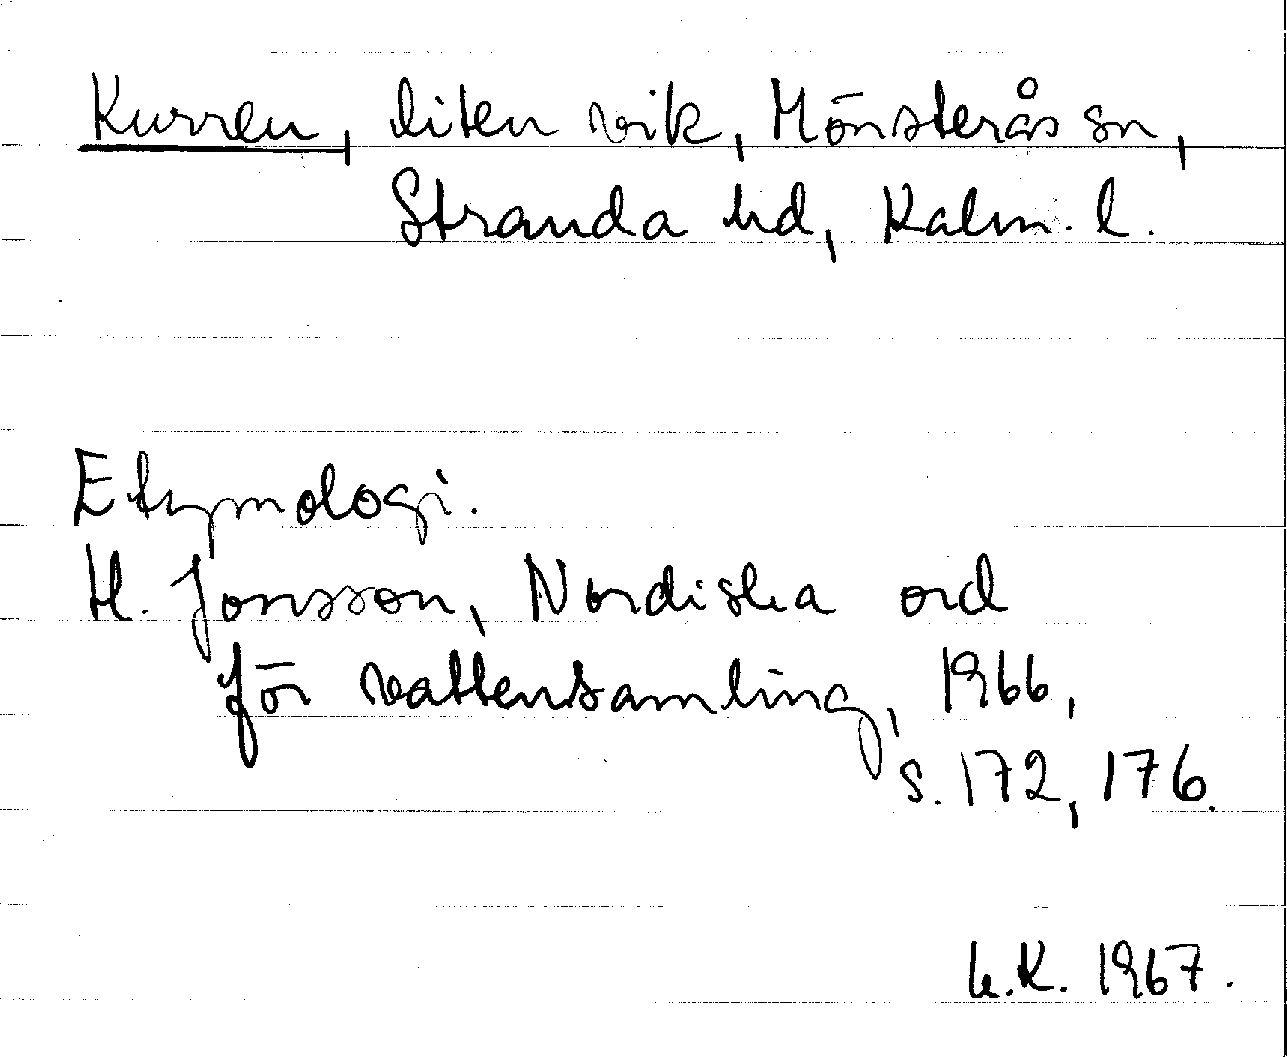 Kurren, liten vik, Mönsterås sn,
Stranda hd, Kalm. l.
Etymologi.
H. Jonsson, Nordiska ord
för vattensamling, 1966,
s. 172, 176.
K. 1967.